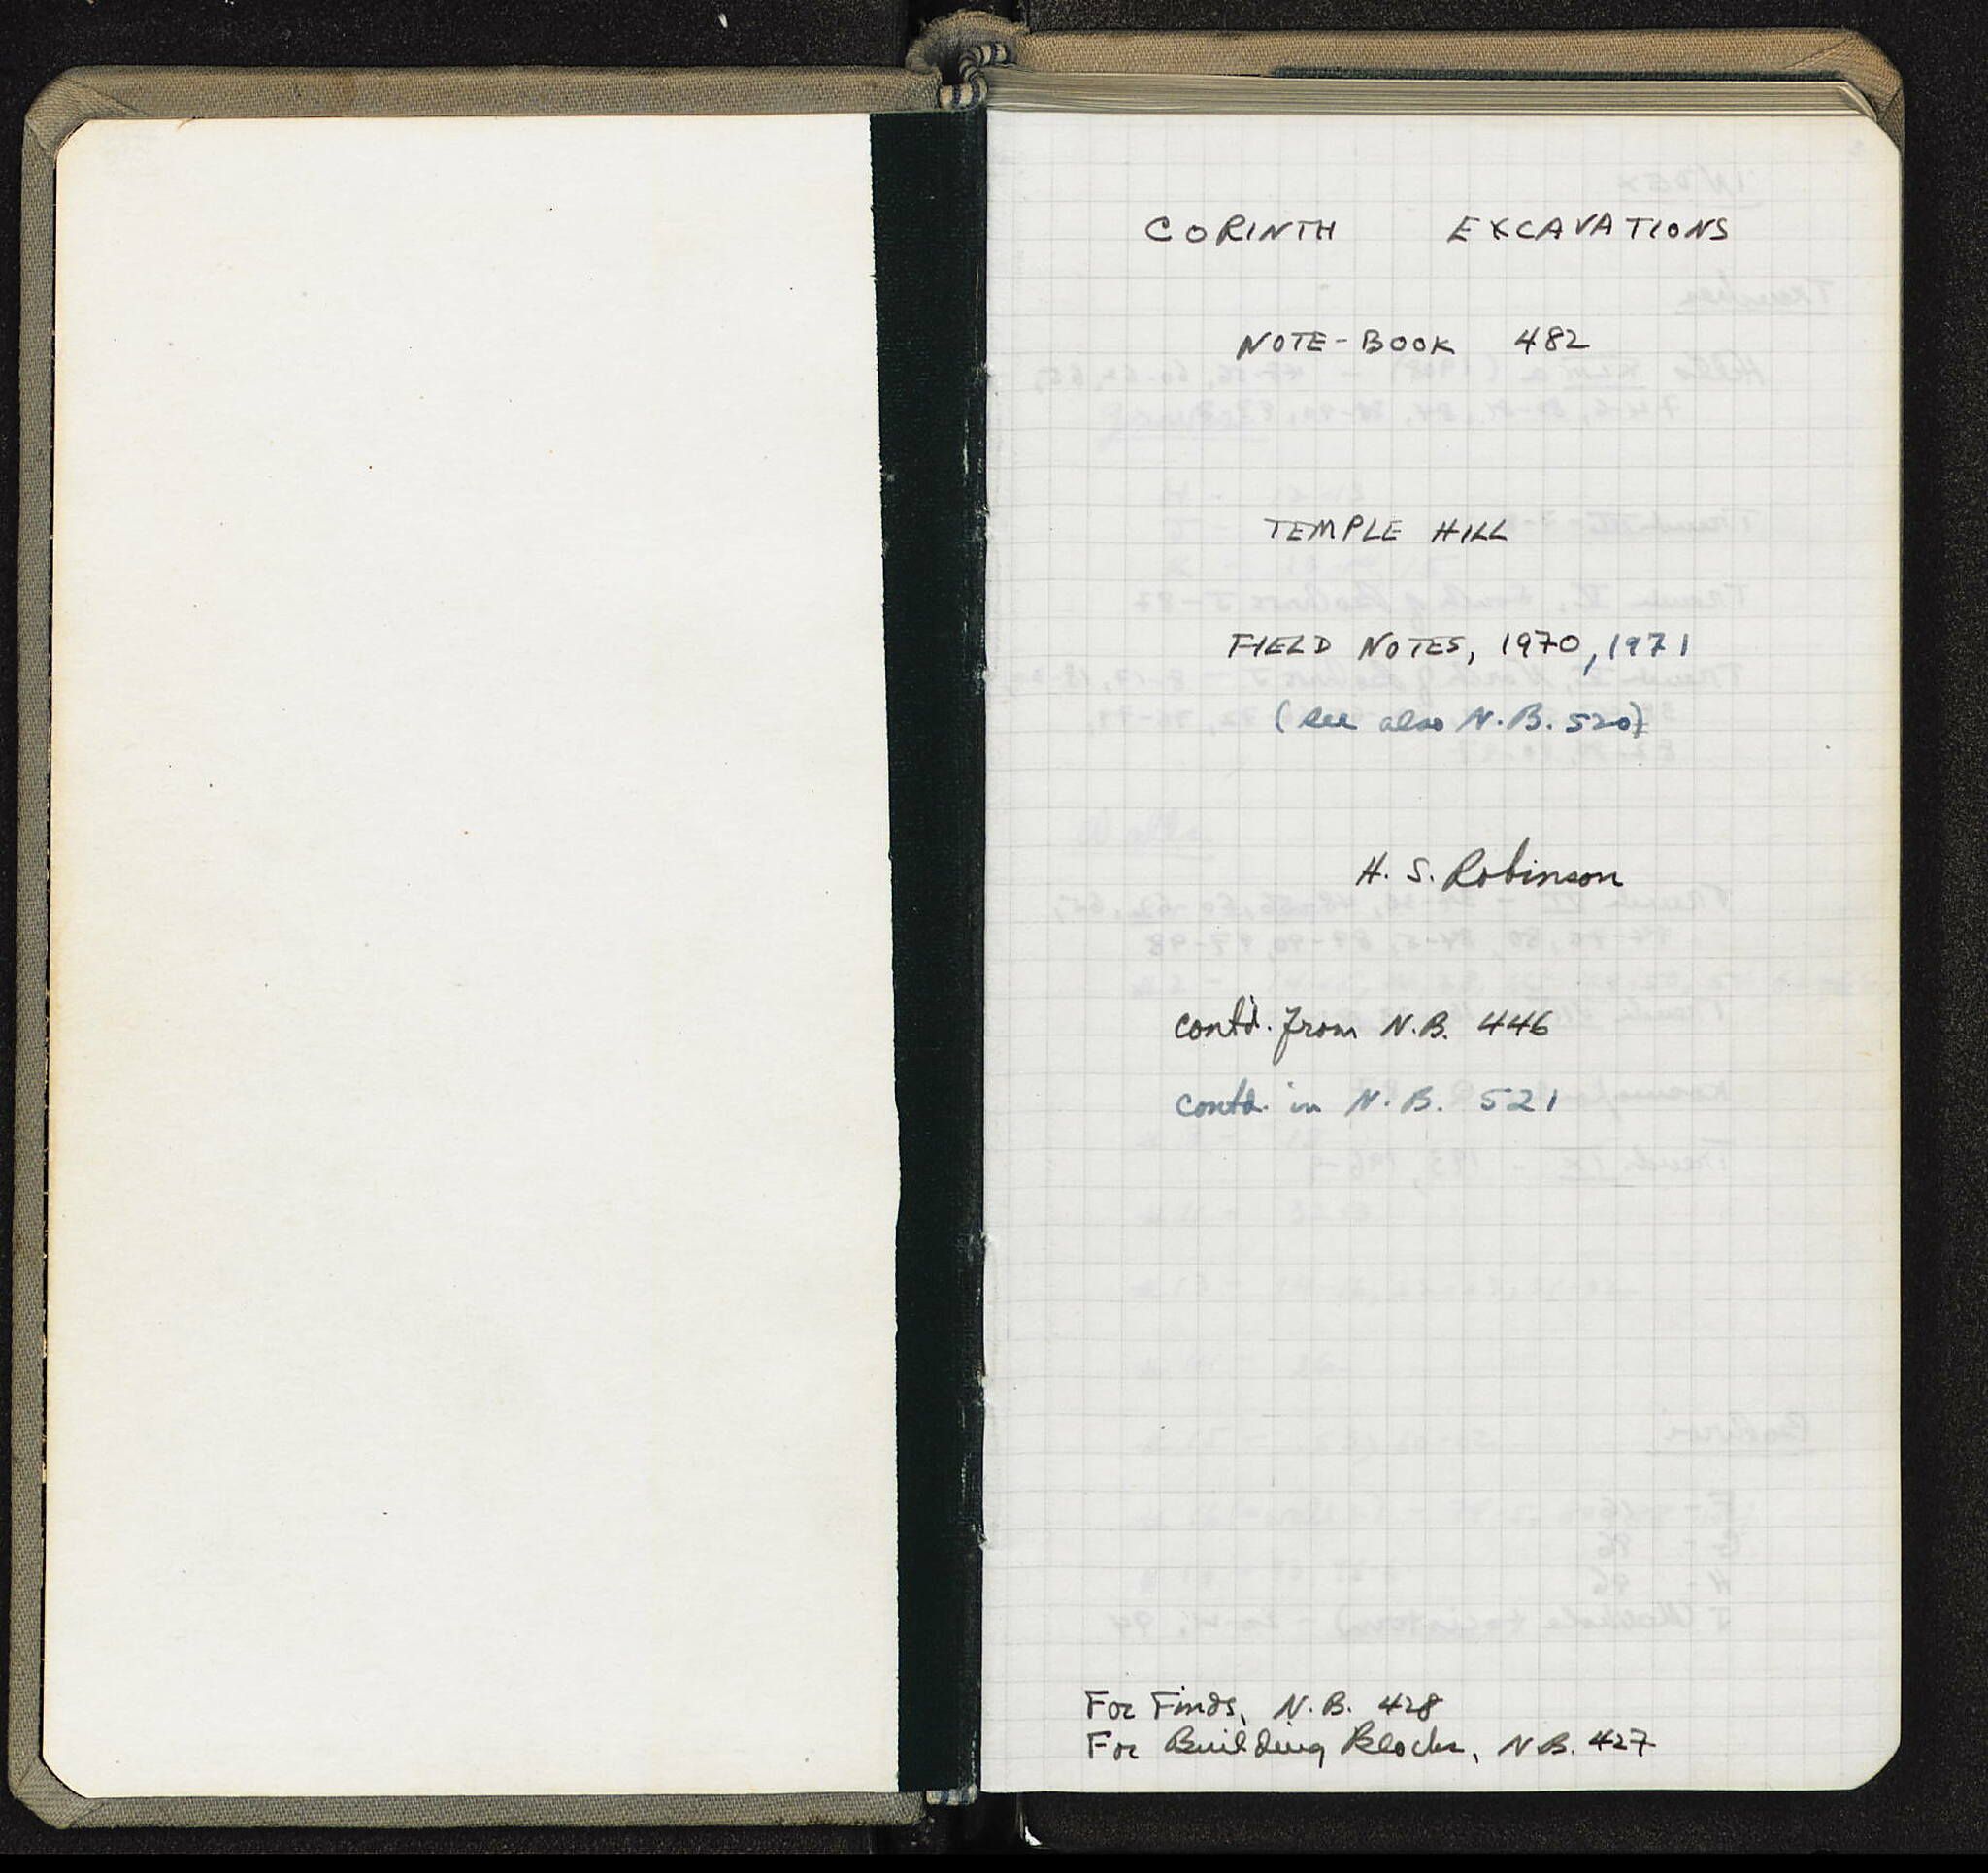 CORINTH EXCAVATIONS
NOTE-BOOK 482
TEMPLE HILL
FIELD NOTES, 1970, 1971
(see also N.B. 520)
H. S. Robinson
contd. from N.B. 446
contd. in N.B. 521
For Finds, N.B. 428
For Building Blocks, N.B. 427